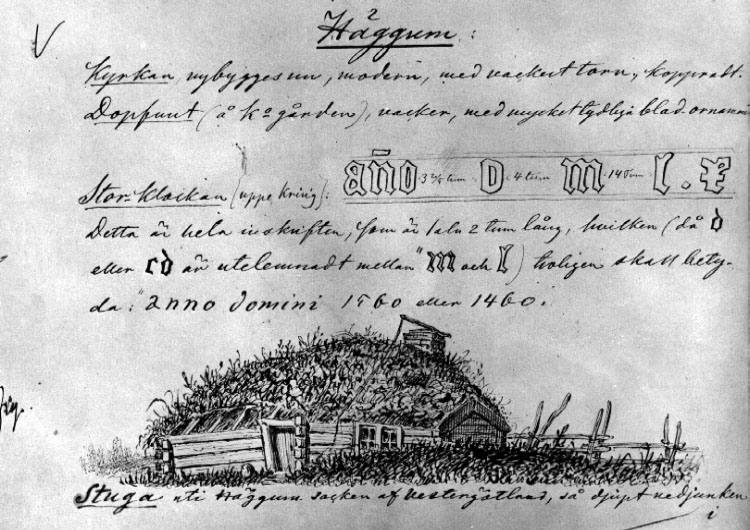 2
Häggum:
Kyrkan, nybygges nu, modern, med vackert torn, koppradt.
Dopfunt (å k° gården), vacker, med mycket tydliga blad-ornam
Stor-klockan (uppe kring): año 3 3/4 tum D 4 tum m 14 tum l.
Detta är hela inskriften, som är 1 aln 2 tum lång, hvilken (då d
eller cd är utelemnadt mellan "m och l) troligen skall bety-
da: "anno domini 1560 eller 1460.
Stuga uti Häggum socken af Vestergötland, så djupt nedsjunken
i